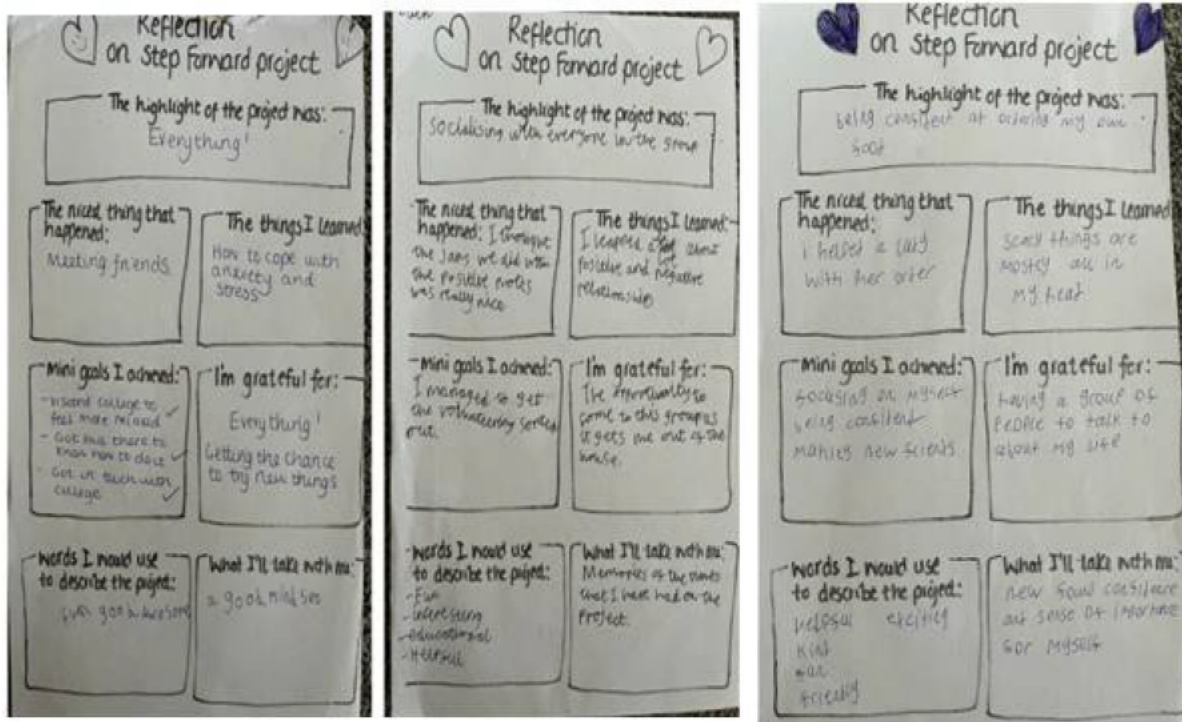 Reflection
on Step Forward project
The highlight of the project was:
Everything!
The nicest thing that
happened:
Meeting friends
The things I learned
How to cope with
anxiety and
stress
Mini goals I achieved:
college to
feel more relaxed
- Got bus there to
know how to do it
- Got in touch with
college
I'm grateful for:
Everything!
Getting the chance
to try new things
Words I would use
to describe the project:
fun good awesome
What I'll take with me:
a good mind set
Reflection
on Step Forward project
The highlight of the project was:
Socialising with everyone in the group
The nicest thing that
happened: I thought
the jars we did with
the positive notes
was really nice
The things I learned:
I learned a lot about
positive and negative
relationships
Mini goals I achieved:
I managed to get
the volunteering sorted
out.
I'm grateful for:
The opportunity to
come to this group as
it gets me out of the
house.
Words I would use
to describe the project:
- Fun
- interesting
- educational
- Helpful
What I'll take with me:
Memories of the
that I have had on the
Project.
Reflection
on Step Forward project
The highlight of the project was:
being at ordering my own
food
The nicest thing that
happened:
i helped a lady
with her order
The things I learned
scary things are
mostly all in
my head
Mini goals I achieved:
focusing on myself
being
making new friends
I'm grateful for:
having a group of
people to talk to
about my life
Words I would use
to describe the project:
helpful exciting
kind
fun
friendly
What I'll take with me:
new found
and sense of
for myself